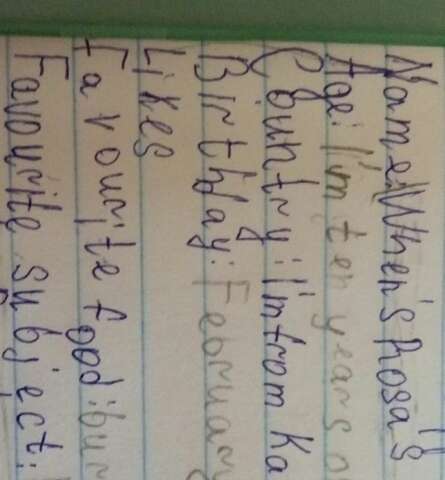 Name: When's Rosa's
Age: I'm ten years o
Country: I'm from Ka
Birthday: February
Likes
Favourite food: bur
Favourite subject: